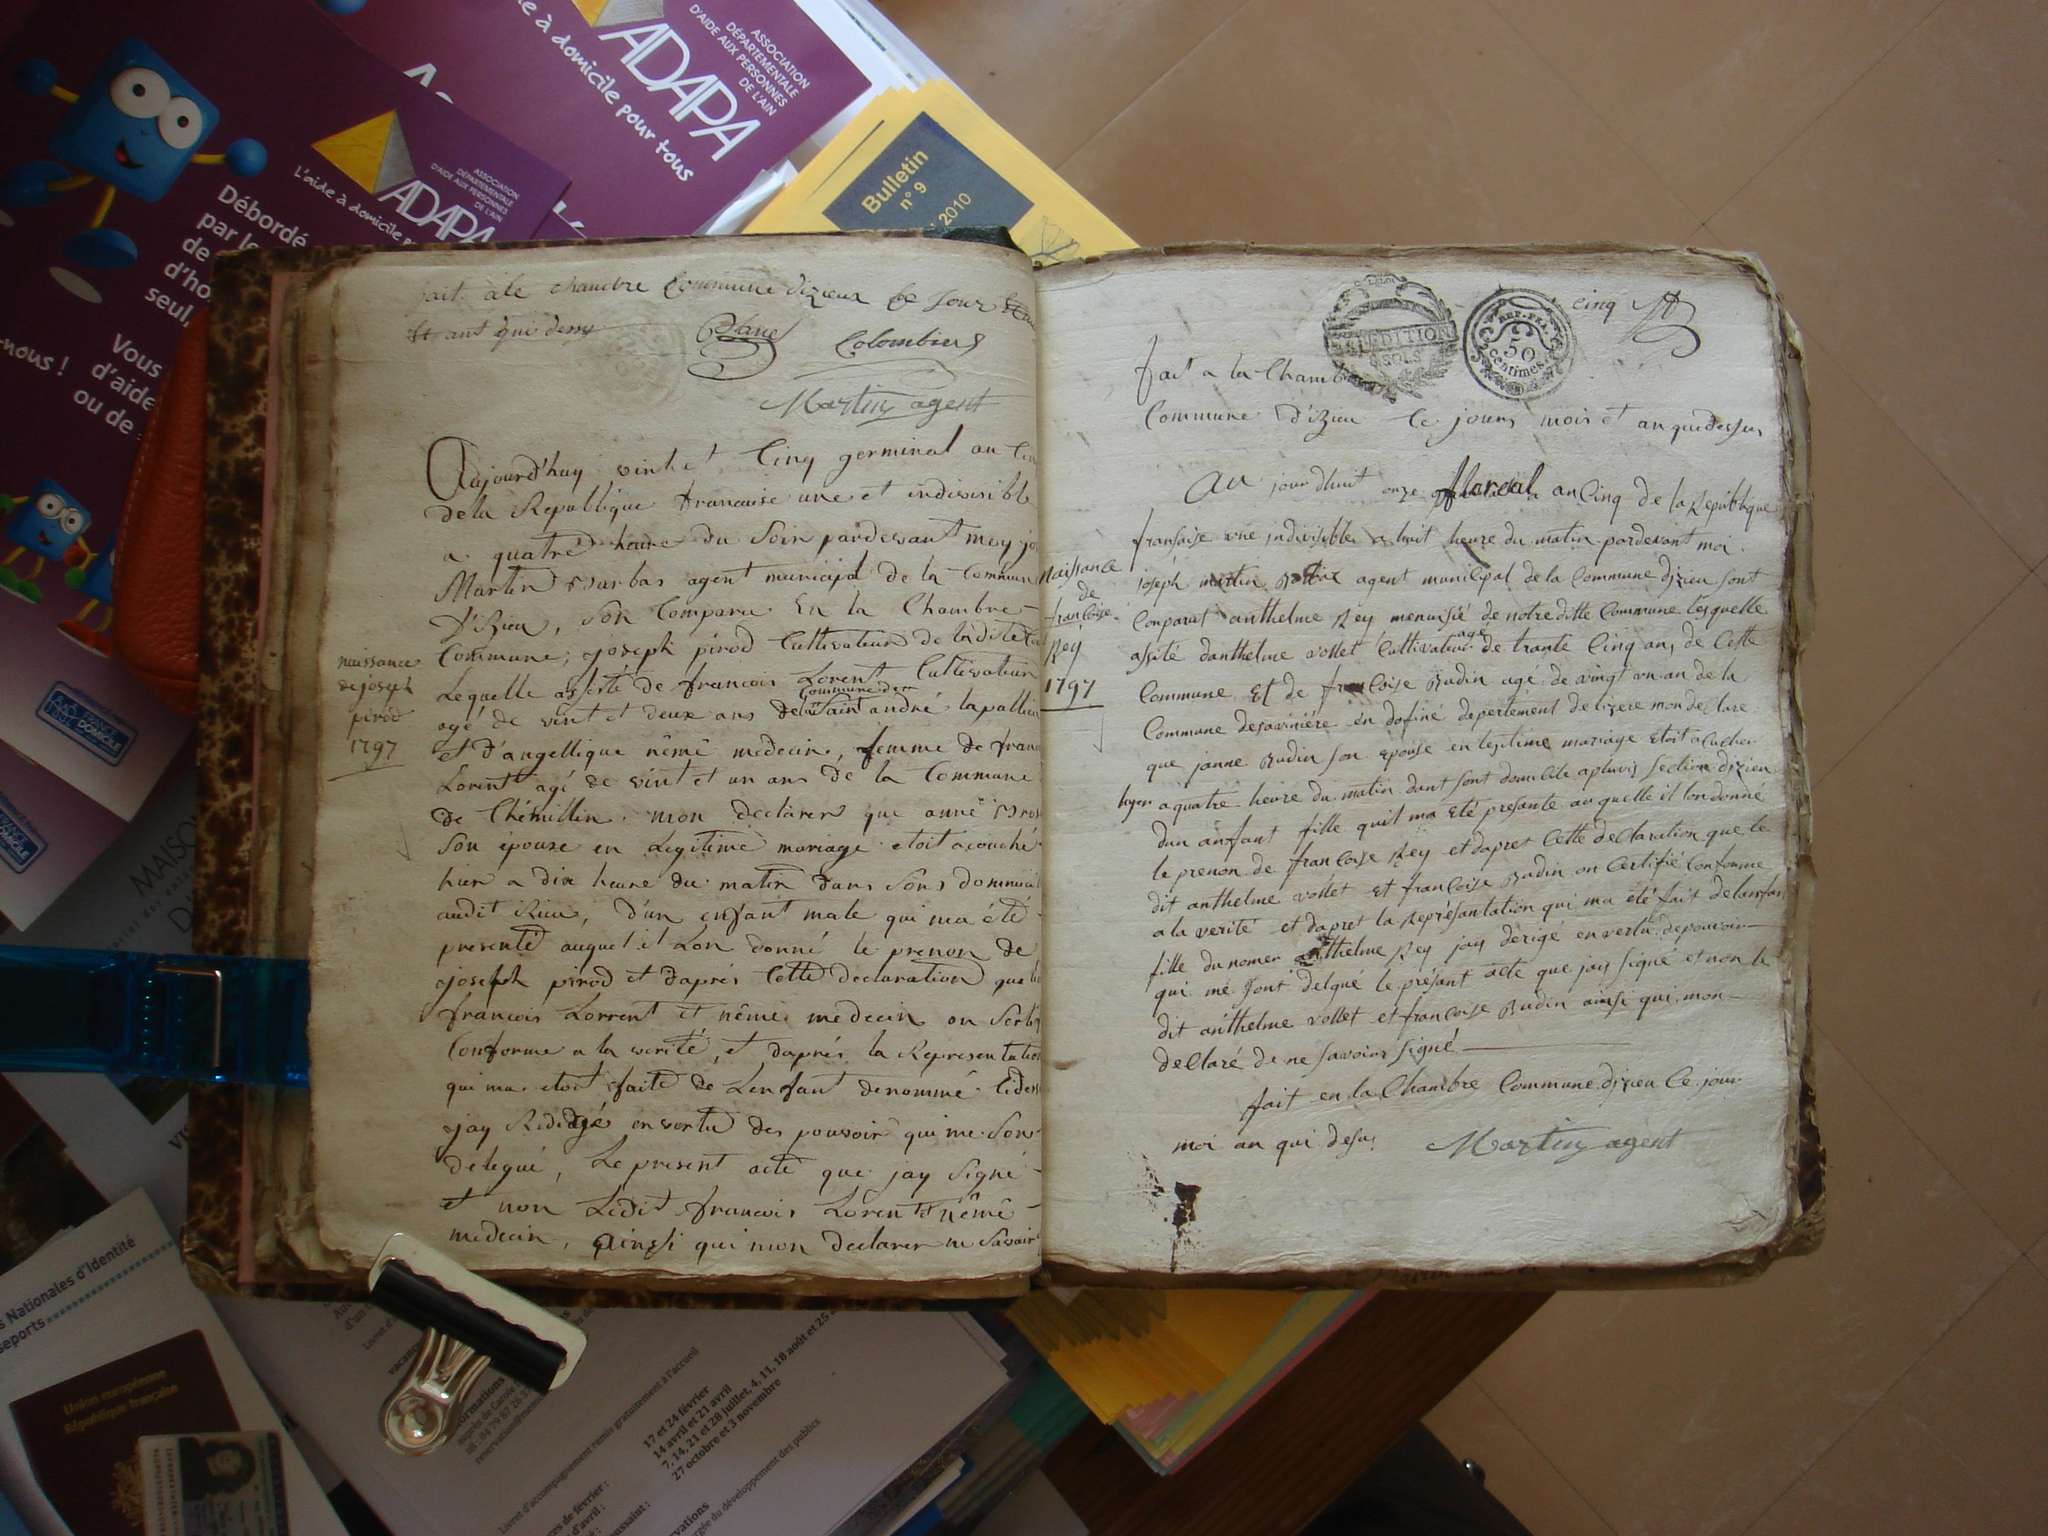 ASSOCIATION
DÉPARTEMENTALE
D'AIDE AUX PERSONNES
DE L'AIN
ADAPA
e à domicile pour tous
ASSOCIATION
DÉPARTEMENTALE
D'AIDE AUX PERSONNES
DE L'AIN
ADAPA
L'aide à domicile
Débordé
par le
de
d'ho
seul,
-nous !
Vous
d'aide
ou de
Bulletin
n° 9
2010
fait a le chambre Commune dizieux Ce jour
et ant qui desus
Colombier
Martin agent
Aujourd'huy vinht Cinq germinal an Cin
de la Republique francaise une et indivisible
a quatre heure du Soir pardevant moy jo
Martin Barbas agent municipal de la Commun
D'izieu, Son Comparu En la Chambre
Commune, joseph pirod Cultivateur de la dite
Lequelle assisté de francois Lorent Cultivateur
agé de vint et deux ans de la Commune de Saint andré lapallu
et d'angellique némé medecin, femme de fran
Lorent agé de vint et un ans de la Commune
de Chémillin mon declarer que anne Bros
Son épouse en Legitime mariage etoit acouché
hier a dix heure du matin dans Sons dommicil
audit izieu, D'un enfant male qui ma été
presenté auquel il Lon donné le prenon de
joseph pirod et daprés Cette declaration que le
francois Lorrent et némé medecin on Serti
Conforme a la verité, et daprés la Representation
qui ma etoit faite de Lenfant denommé Cides
jay Rididgé en vertu des pouvoir qui me Son
delegué, Le present acte que jay Signé
et non Ledit francois Lorent et némé
medecin, ainsi qui mon declarer ne Savoir
naissance
de joseph
pirod
1797
cinq
REP. FRA.
50
centimes
fait a la Chambre
Commune D'izieu le jours mois et an que dessus
Au jourdhuit onze floreal an Cinq de la Republique
fransaise une indivisible a huit heure du matin pardevant moi
joseph martin Barbas agent municipal de la Commune dizieu sont
Conparut anthelme Rey menuisié de notre ditte Commune lesquelle
assité danthelme vollet Cultivateur agé de trante Cinq ans de Cette
Commune Et de francoise Rudin agé de vingt un an de la
Commune desaviniére en dofiné depertément de lizere mon declare
que janne Rudin son epouse en leptime mariage Etoit acucher
hyer a quatre heure du matin dant sont domicile apluvis section dizieu
dun anfant fille quil ma été presante auquelle il lon donné
le prenon de francoise Rey et dapret Cette declaration que le
dit anthelme vollet et francoise Rudin on Certifié Conforme
a la verité et dapret la Représantation qui ma été fait de lanfan
fille du nomer anthelme Rey jay dérigé en vertu de pouvoir
qui me sont delgué le présant acte que jais signé et non le
dit anthelme vollet et francoise Rudin ainsi qui mon
declaré de ne savoir signé
fait en la Chambre Commune dizieu Ce jour
moi an qui desus
Martin agent
naissance
de
francoise
Rey
1797
s Nationales d'Identité
seports
Union européenne
République française
Livret d'accompagnement remis gratuitement à l'accueil
17 et 24 février
14 avril et 21 avril
7, 14, 21 et 28 juillet, 4, 11, 18 août et 25
27 octobre et 3 novembre